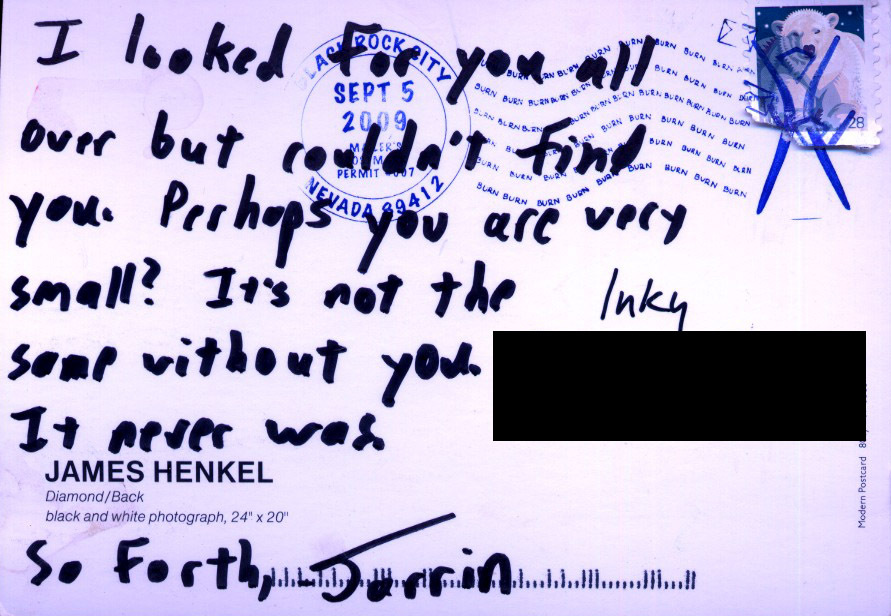 I looked For you all
over but couldn't find
you. Perhaps you are very
small? It's not the
same without you.
It never was.
So Forth, Jarrin
Inky
BLACK ROCK CITY
SEPT 5
2009
PERMIT
NEVADA 89412
BURN BURN BURN BURN BURN BURN BURN
BURN BURN BURN BURN BURN BURN BURN BURN
BURN BURN BURN BURN BURN BURN BURN BURN
BURN BURN BURN BURN BURN BURN BURN
BURN BURN BURN BURN BURN BURN BURN
BURN BURN BURN BURN BURN BURN BURN
28
JAMES HENKEL
Diamond/Back
black and white photograph, 24" x 20"
Modern Postcard